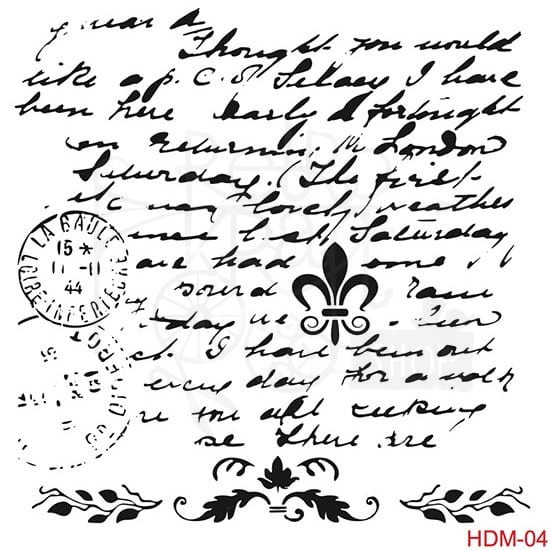 Thought you would
like a p.c. of Selsey I have
been here nearly a fortnight
am returning to London
Saturday. (The first
lovely weather
since last Saturday
we had some
sound rain
day we
I have been out
every day for a walk
you all keeping
se there are
LA BAULE
15 *
11 -11
44
LOIRE-INFERIEURE
HDM-04